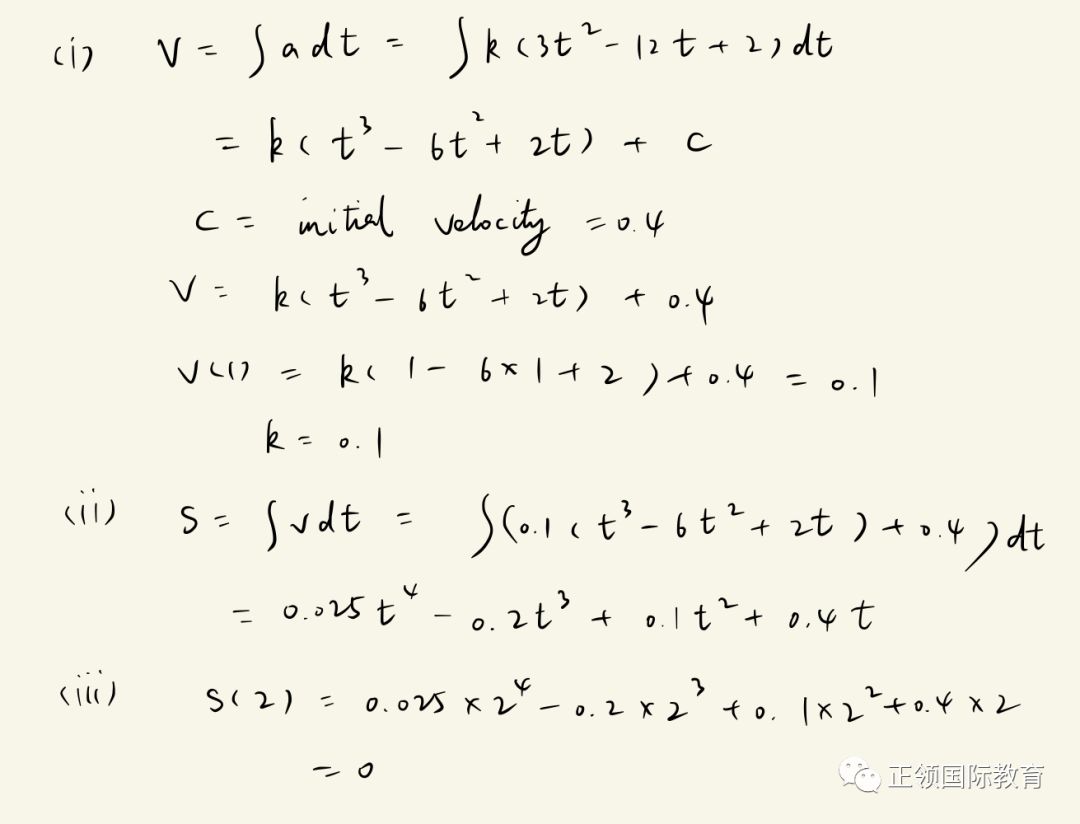 (i) V = ∫ a dt = ∫ k (3t² - 12t + 2) dt
= k( t³ - 6t² + 2t) + C
C = initial velocity = 0.4
V = k( t³ - 6t² + 2t) + 0.4
V(1) = k( 1 - 6×1 + 2 ) + 0.4 = 0.1
k = 0.1
(ii) S = ∫ v dt = ∫ (0.1 ( t³ - 6t² + 2t ) + 0.4 ) dt
= 0.025 t⁴ - 0.2t³ + 0.1t² + 0.4t
(iii) S(2) = 0.025 × 2⁴ - 0.2 × 2³ + 0.1×2² + 0.4 × 2
= 0
正领国际教育